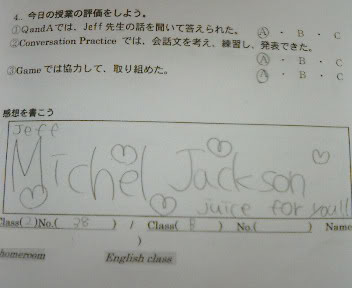 4. 今日の授業の評価をしよう。
①QandAでは、Jeff 先生の話を聞いて答えられた。 A ・ B ・ C
②Conversation Practice では、会話文を考え、練習し、発表できた。
A ・ B ・ C
③Gameでは協力して、取り組めた。 A ・ B ・ C
感想を書こう
Jeff
Michel Jackson
juice for you!!
Class(2)No.( 28 ) / Class( B ) No.( ) Name
)
homeroom English class